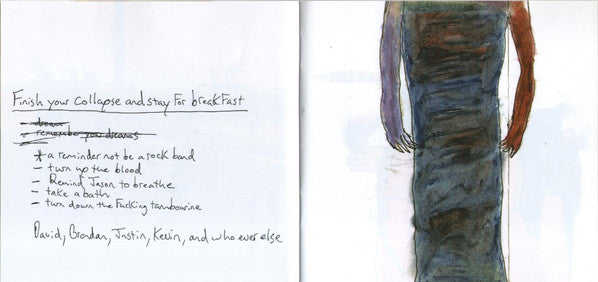 Finish your collapse and stay for breakfast
- dream
- remember your dreams
* a reminder not be a rock band
- turn up the blood
- Remind Jason to breathe
- take a bath
- turn down the Fucking tambourine
David, Brendan, Justin, Kevin, and who ever else